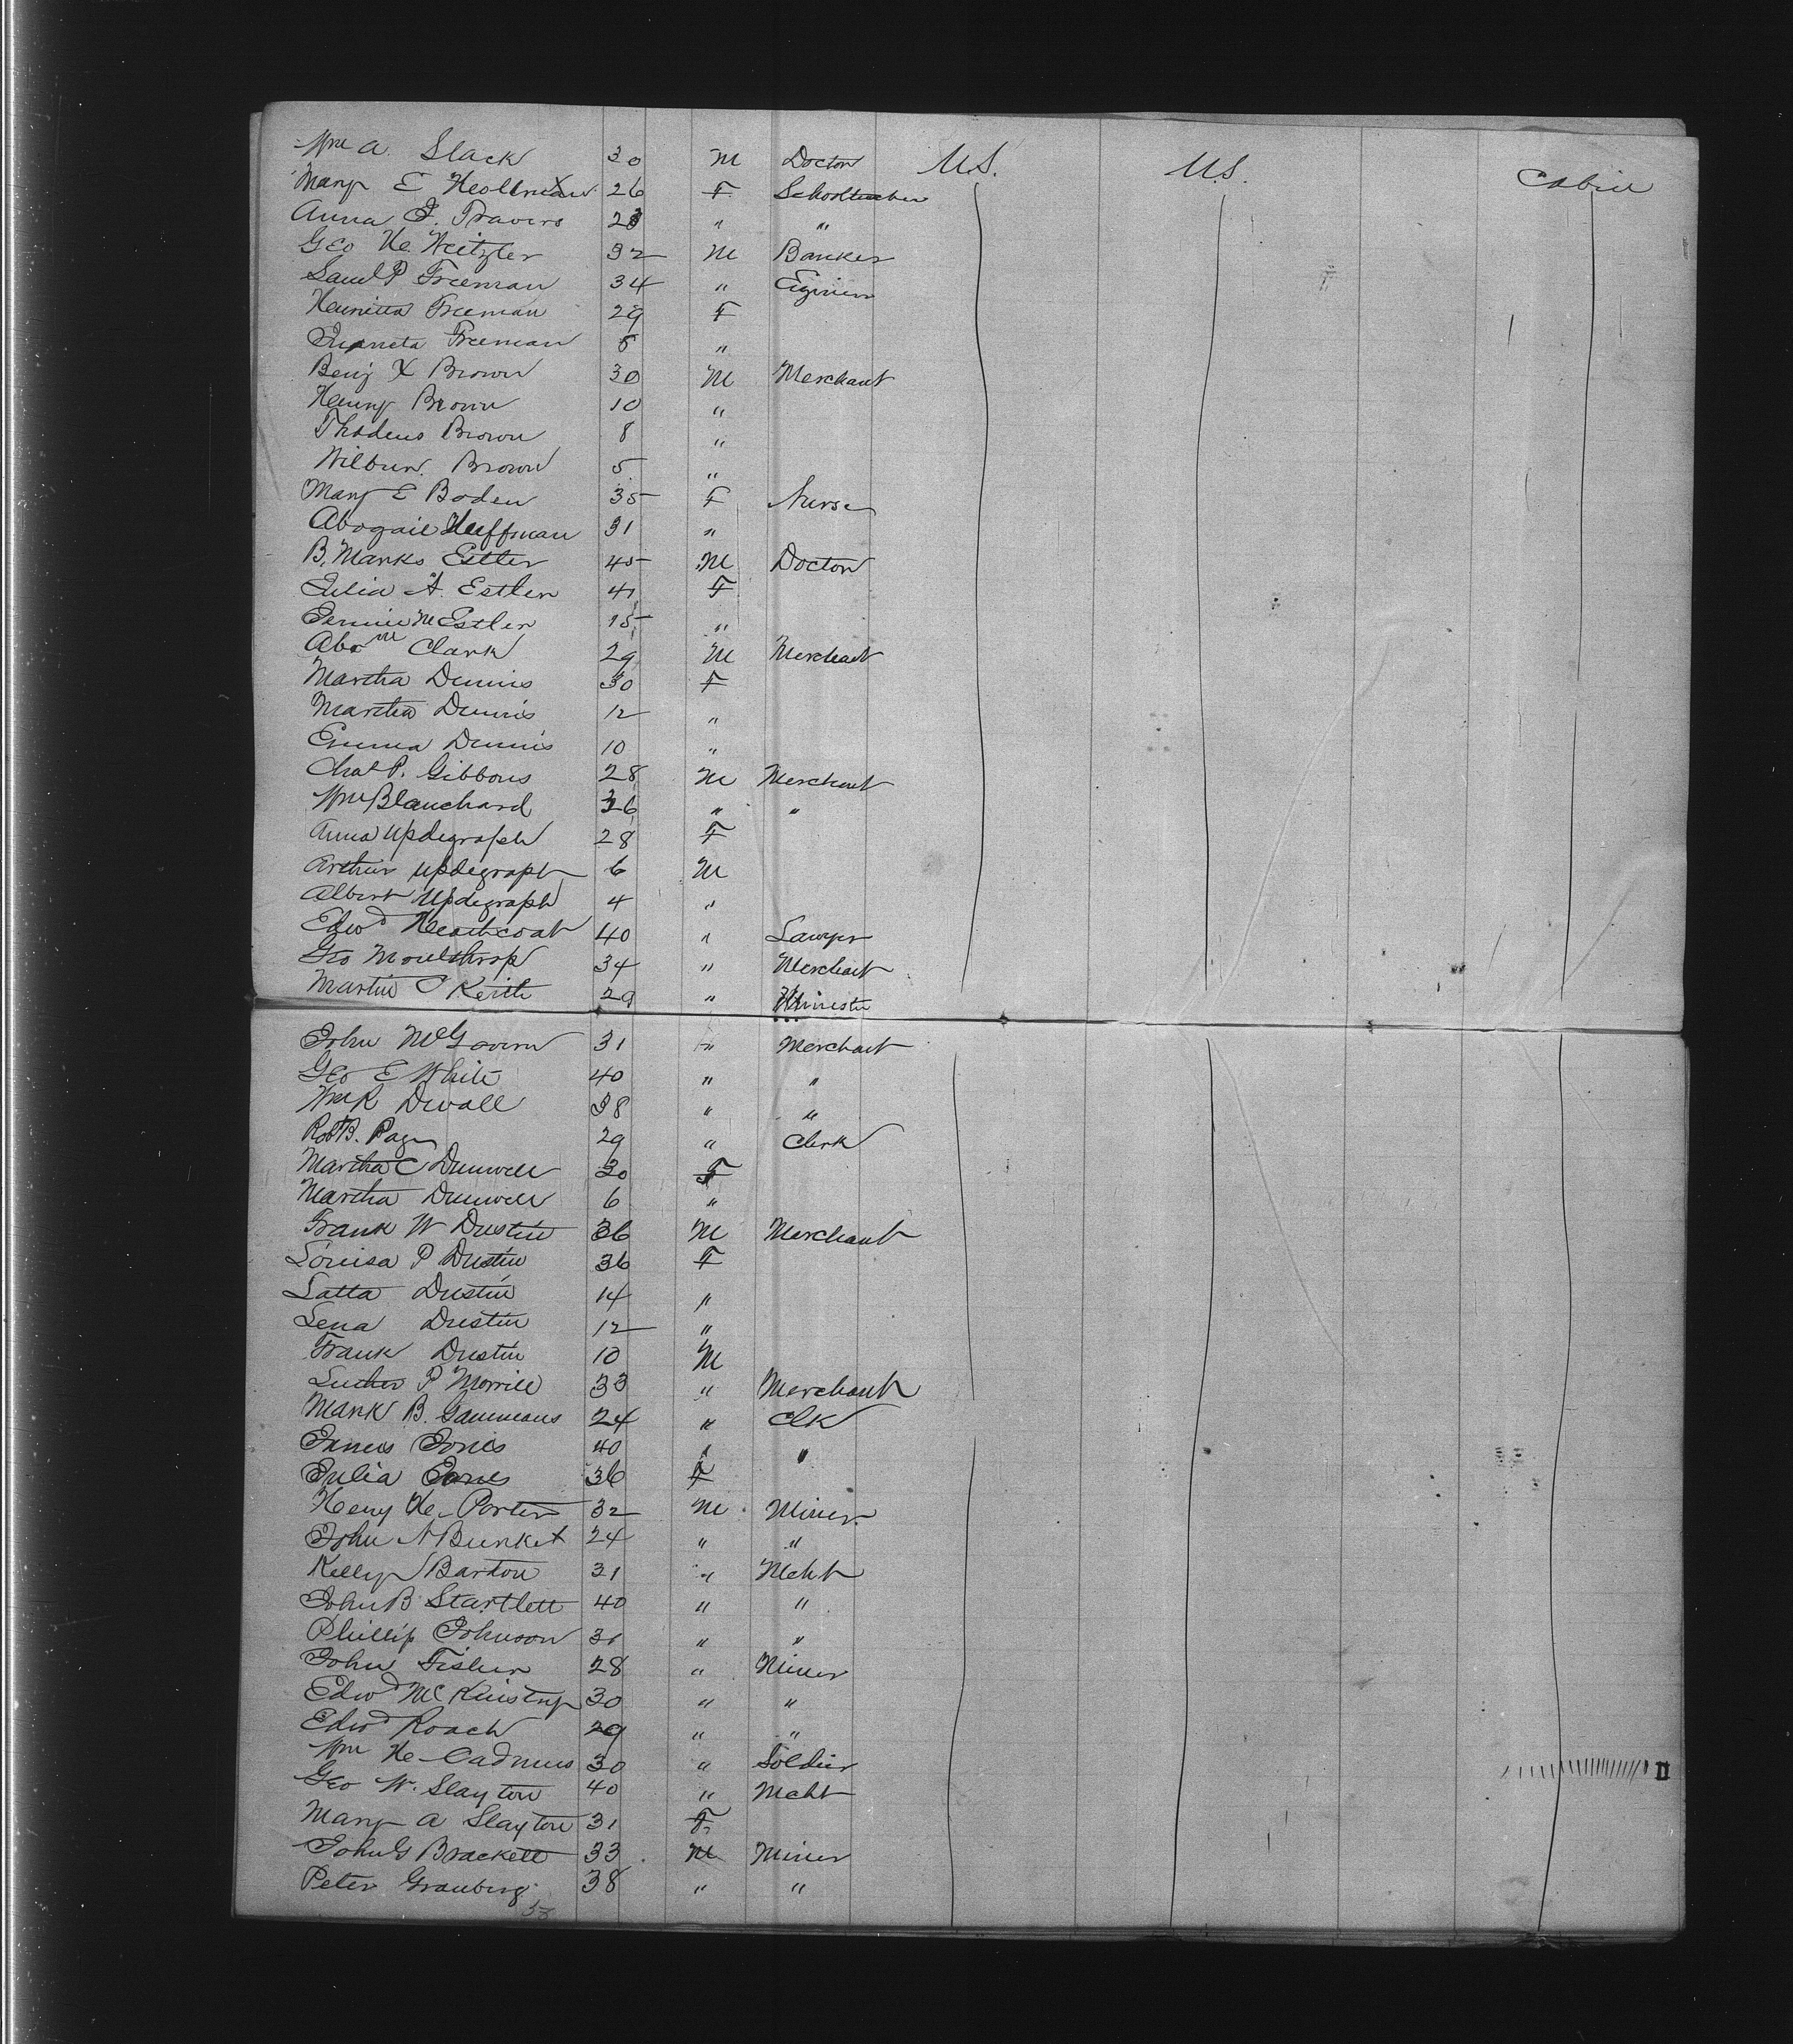 Wm A. Slack 30 M Doctor U.S. U.S. Cabin
Mary E 26 F Schoolteacher
Anna J. Travers 28 " "
Geo H. Weitzler 32 M Banker
Saml P Freeman 34 "
Henrietta Freeman 29 F
Freeman "
Benj H Brown 30 M Merchant
Henry Brown 10 "
Thadeus Brown 8 "
Wilbur. Brown 5 "
Mary E Boden 35 F Nurse
Abogail Huffman 31 "
B. Marks Estler 45 M Doctor
Julia A. Estler 41 F
Jennie M Estler 15 "
Abrm Clark 29 M Merchant
Martha Dennis 30 F
Martha Dennis 12 "
Emma Dennis 10 "
Chas P. Gibbons 28 M Merchant
Wm Blanchard 36 " "
Anna Updegraph 28 F
Arthur Updegraph 6 M
Albert Updegraph 4 "
Edwd Heathcoat 40 " Lawyer
Geo Moulthrop 34 " Merchant
Martin C Keith 29 " Minister
John McGovern 31 " Merchant
Geo E White 40 " "
Wm R Devall 38 " "
Robt B. Page 29 " Clerk
Martha C Dunwell 30 F
Martha Dunwell 6 "
Frank W Dustin 36 M Merchant
Louisa P Dustin 36 F
Latta Dustin 14 "
Lena Dustin 12 "
Frank Dustin 10 M
Luther P Morrill 33 " Merchant
Mark B. Gammans 24 " Clk
James Jones 40 " "
Julia Jones 36 F
Henry H. Porter 32 M Miner
John A Bunket 24 " "
Kelly Barton 31 " Mcht
John B Startlett 40 " "
Phillip Johnson 31 " "
John Fisher 28 " Miner
Edwd McKinstry 30 " "
Edwd Roach 29 " "
Wm H. Cadmus 30 " Soldier
Geo W. Slayton 40 " Mcht
Mary A Slayton 31 F
John G Brackett 33 M Miner
Peter Granberg 38 " "